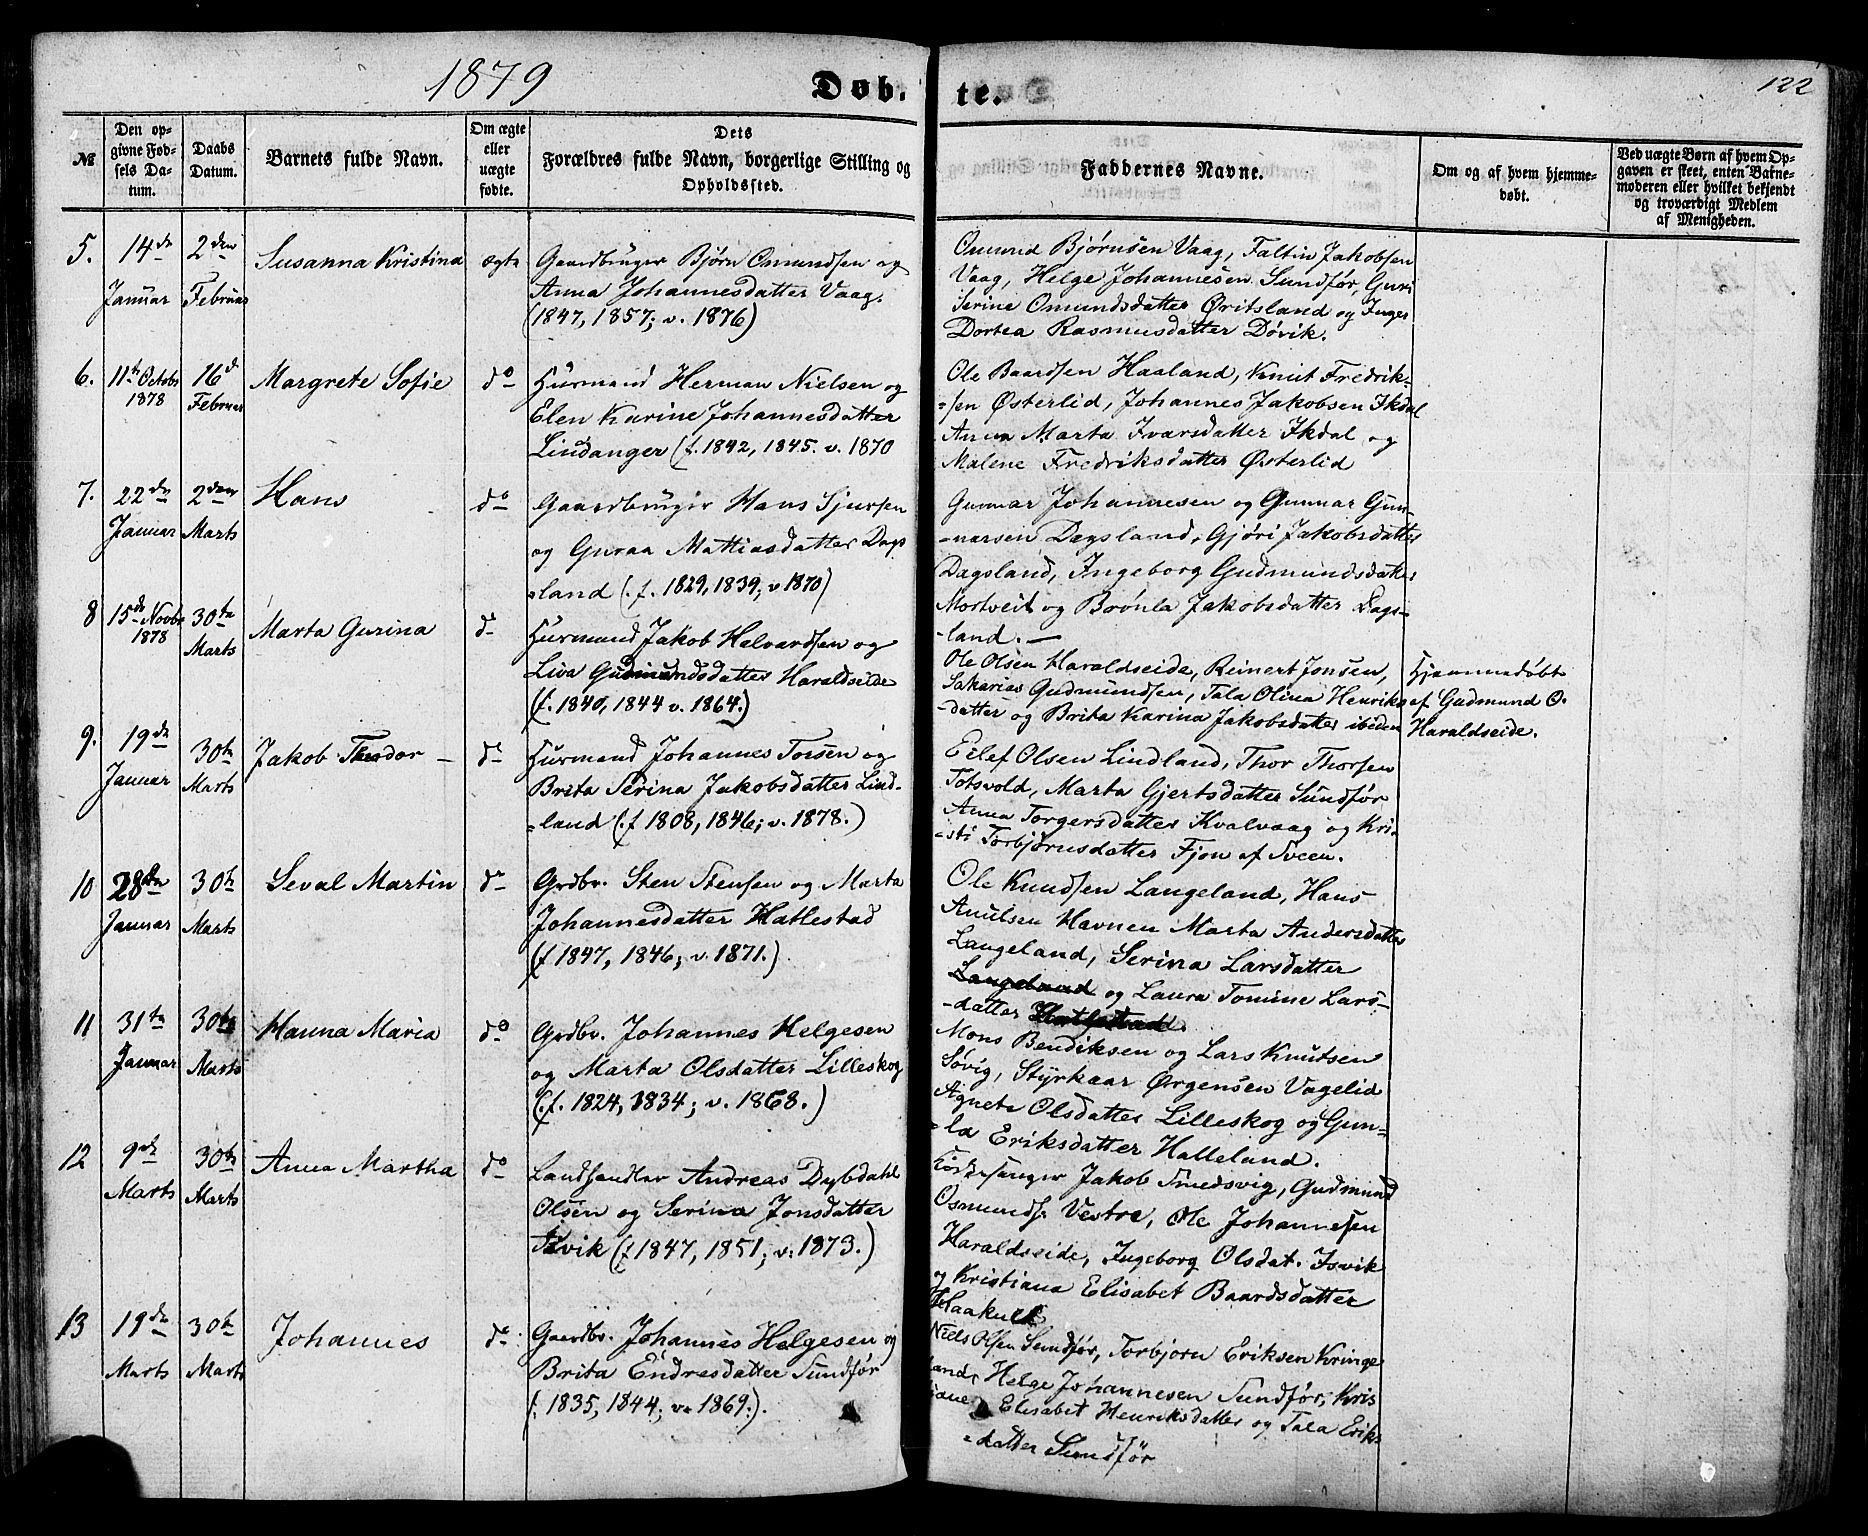 1879
Døb. te.
122
№
Den op-
givne Fød-
sels Da-
tum.
Daabs
Datum.
Barnets fulde Navn.
Om ægte
eller
uægte
fødte.
Dets
Forældres fulde Navn, borgerlige Stilling og
Opholdssted.
Faddernes Navne.
Om og af hvem hjemme-
døbt.
Ved uægte Børn af hvem Op-
gaven er skeet, enten Barne-
moderen eller hvilket bekjendt
og troværdigt Medlem
af Menigheden.
5.
14de
Januar
2den
Februar
Susanna Kristina
ægte
Gaardbruger Bjørn Omundsen og
Anna Johannesdatter Vaag.
(1847, 1857; v. 1876)
Omund Bjørnsen Vaag, Faltin Jakobsen
Vaag, Helge Johannesen Sundfør, Guri
Serine Omundsdatter Øritsland og Inger
Dortea Rasmusdatter Døvik.
6.
11te Octobr
1878
16de
Februar
Margrete Sofie
do
Husmand Herman Nielsen og
Elen Karine Johannesdatter
Lindanger (f. 1842, 1845. v. 1870
Ole Baardsen Haaland, Knut Fredrik-
=sen Østerlid, Johannes Jakobsen Ikdal
Anna Marta Ivarsdatter Ikdal og
Malene Fredriksdatter Østerlid
7.
22de
Januar
2den
Marts
Hans
do
Gaardbruger Hans Sjursen
og Guraa Mattiasdatter Dags
=land (f. 1829, 1839; v 1870)
Gunnar Johannesen og Gunnar Gun-
=narsen Dagsland, Gjøri Jakobsdatter
Dagsland, Ingeborg Gudmundsdatter
Mortveit og Brønla Jakobsdatter Dags-
-land. —
8
15de Novbr
1878
30te
Marts
Marta Gurina
do
Husmand Jakob Halvardsen og
Liva Gudmundsdatter Haraldseide
(f. 1840, 1844 v. 1864.)
Ole Olsen Haraldseide, Reinert Jonsen,
Sakarias Gudmundsen, Tala Olina Henriks
-datter og Brita Karina Jakobsdatter ibiden
Hjemmedøbt
af Gudmund O.
Haraldseide.
9.
19de
Januar
30te
Marts
Jakob Theodor —
do
Husmand Johannes Torsen og
Brita Serina Jakobsdatter Lind-
=land (f 1808, 1846; v. 1878.)
Eilef Olsen Lindland, Thor Thorsen
Totsvold, Marta Gjertsdatter Sundfør
Anna Torgersdatter Kvalvaag og Kri-
=sti Torbjørnsdatter Fjon af Sveen.
10
28de
Januar
30te
Marts
Seval Martin
do
Grdbr. Sten Stensen og Marta
Johannesdatter Hatlestad
(f 1847, 1846; v. 1871.)
Ole Knudsen Langeland, Hans
Anulsen Havnen Marta Andersdatter
Langeland, Serina Larsdatter
Langeland og Laura Tomine Lars-
-datter
11
31te
Januar
30te
Marts
Hanna Maria
do
Grdbr. Johannes Helgesen
og Marta Olsdatter Lilleskog
(f. 1824, 1834; v. 1868.)
Mons Bendiksen og Lars Knutsen
Søvig, Styrkaar Ørgensen Vagelid
Agnete Olsdatter Lilleskog og Gun=
=la Eriksdatter Halleland.
12
9de
Marts
30te
Marts
Anna Martha
do
Landhandler Andreas Dybdahl
Olsen og Serina Jonsdatter
Isvik (f 1847, 1851; v. 1873.)
Kirkesanger Jakob Smedsvig, Gudmund
Osmunds. Vestre, Ole Johannesen
Haraldseide, Ingeborg Olsdat. Isvik
og Kristiana Elisabet Baardsdatter
13
19de
Marts
30te
Marts
Johannes
do
Gaardbr. Johannes Helgesen og
Brita Endresdatter Sundfør
(f. 1835, 1844; v. 1869.).
Niels Olsen Sundfør, Torbjørn Eriksen Kringe
land, Helge Johannesen Sundfør, Kris
tiane Elisabet Henriksdatter og Tala Eriks
=datter Sundfør